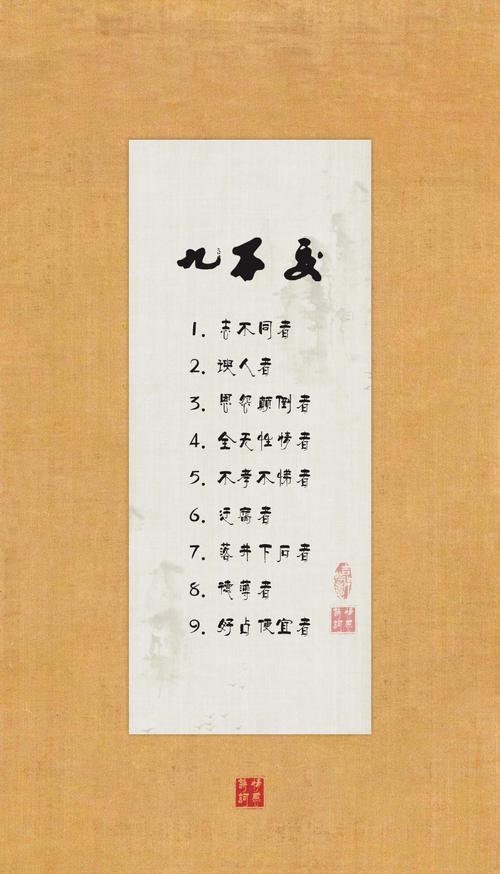 九不交
1. 志不同者
2. 谀人者
3. 恩怨颠倒者
4. 全无性情者
5. 不孝不悌者
6. 迂腐者
7. 落井下石者
8. 德薄者
9. 好占便宜者